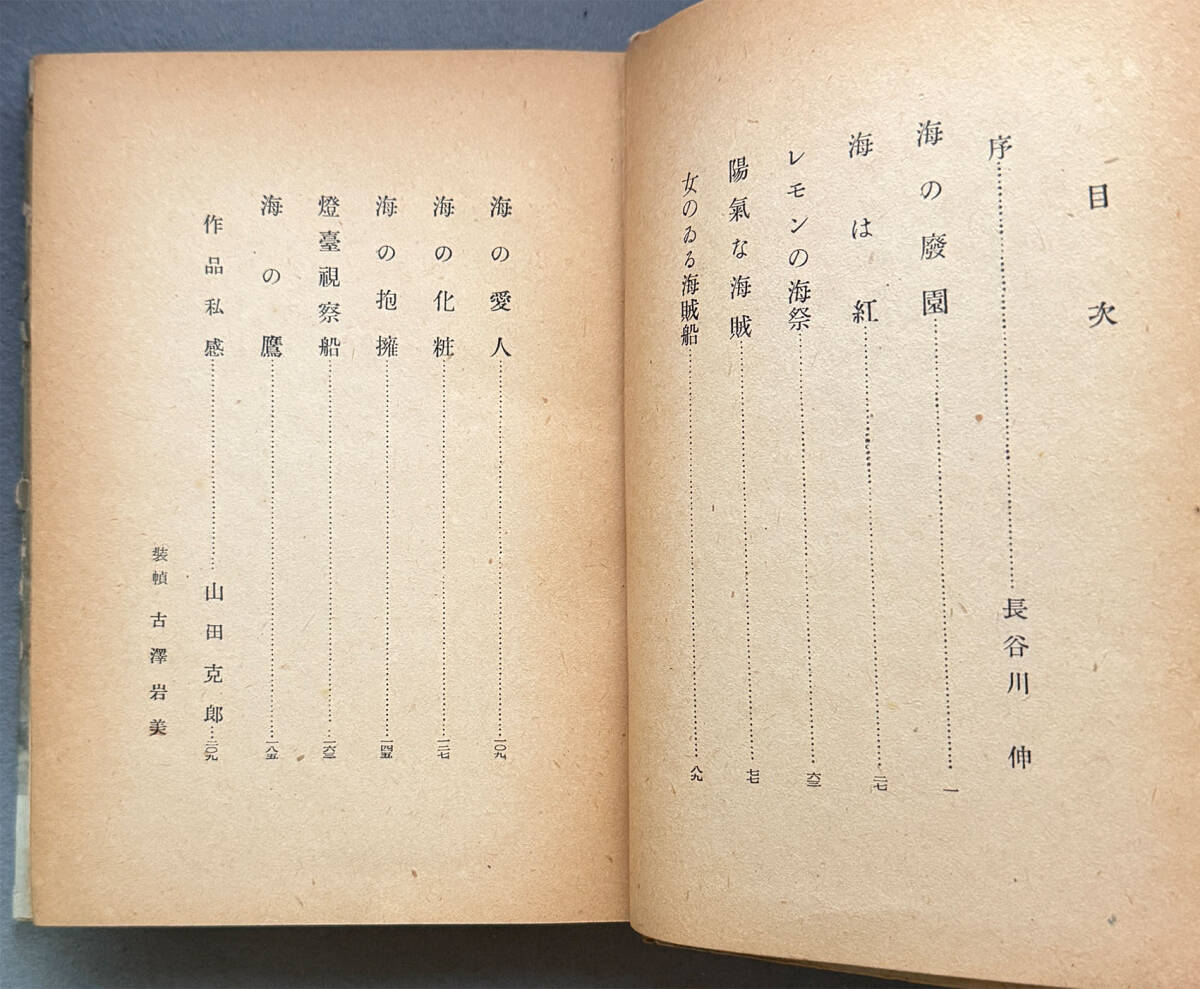 目次
序……長谷川 伸
海の廢園……一
海は紅……二七
レモンの海祭……六三
陽氣な海賊……七七
女のゐる海賊船……八九
海の愛人……一〇九
海の化粧……一二七
海の抱擁……一四五
燈臺視察船……一六三
海の鷹……一八五
作品私感……山田克郎…二〇九
裝幀 古澤岩美